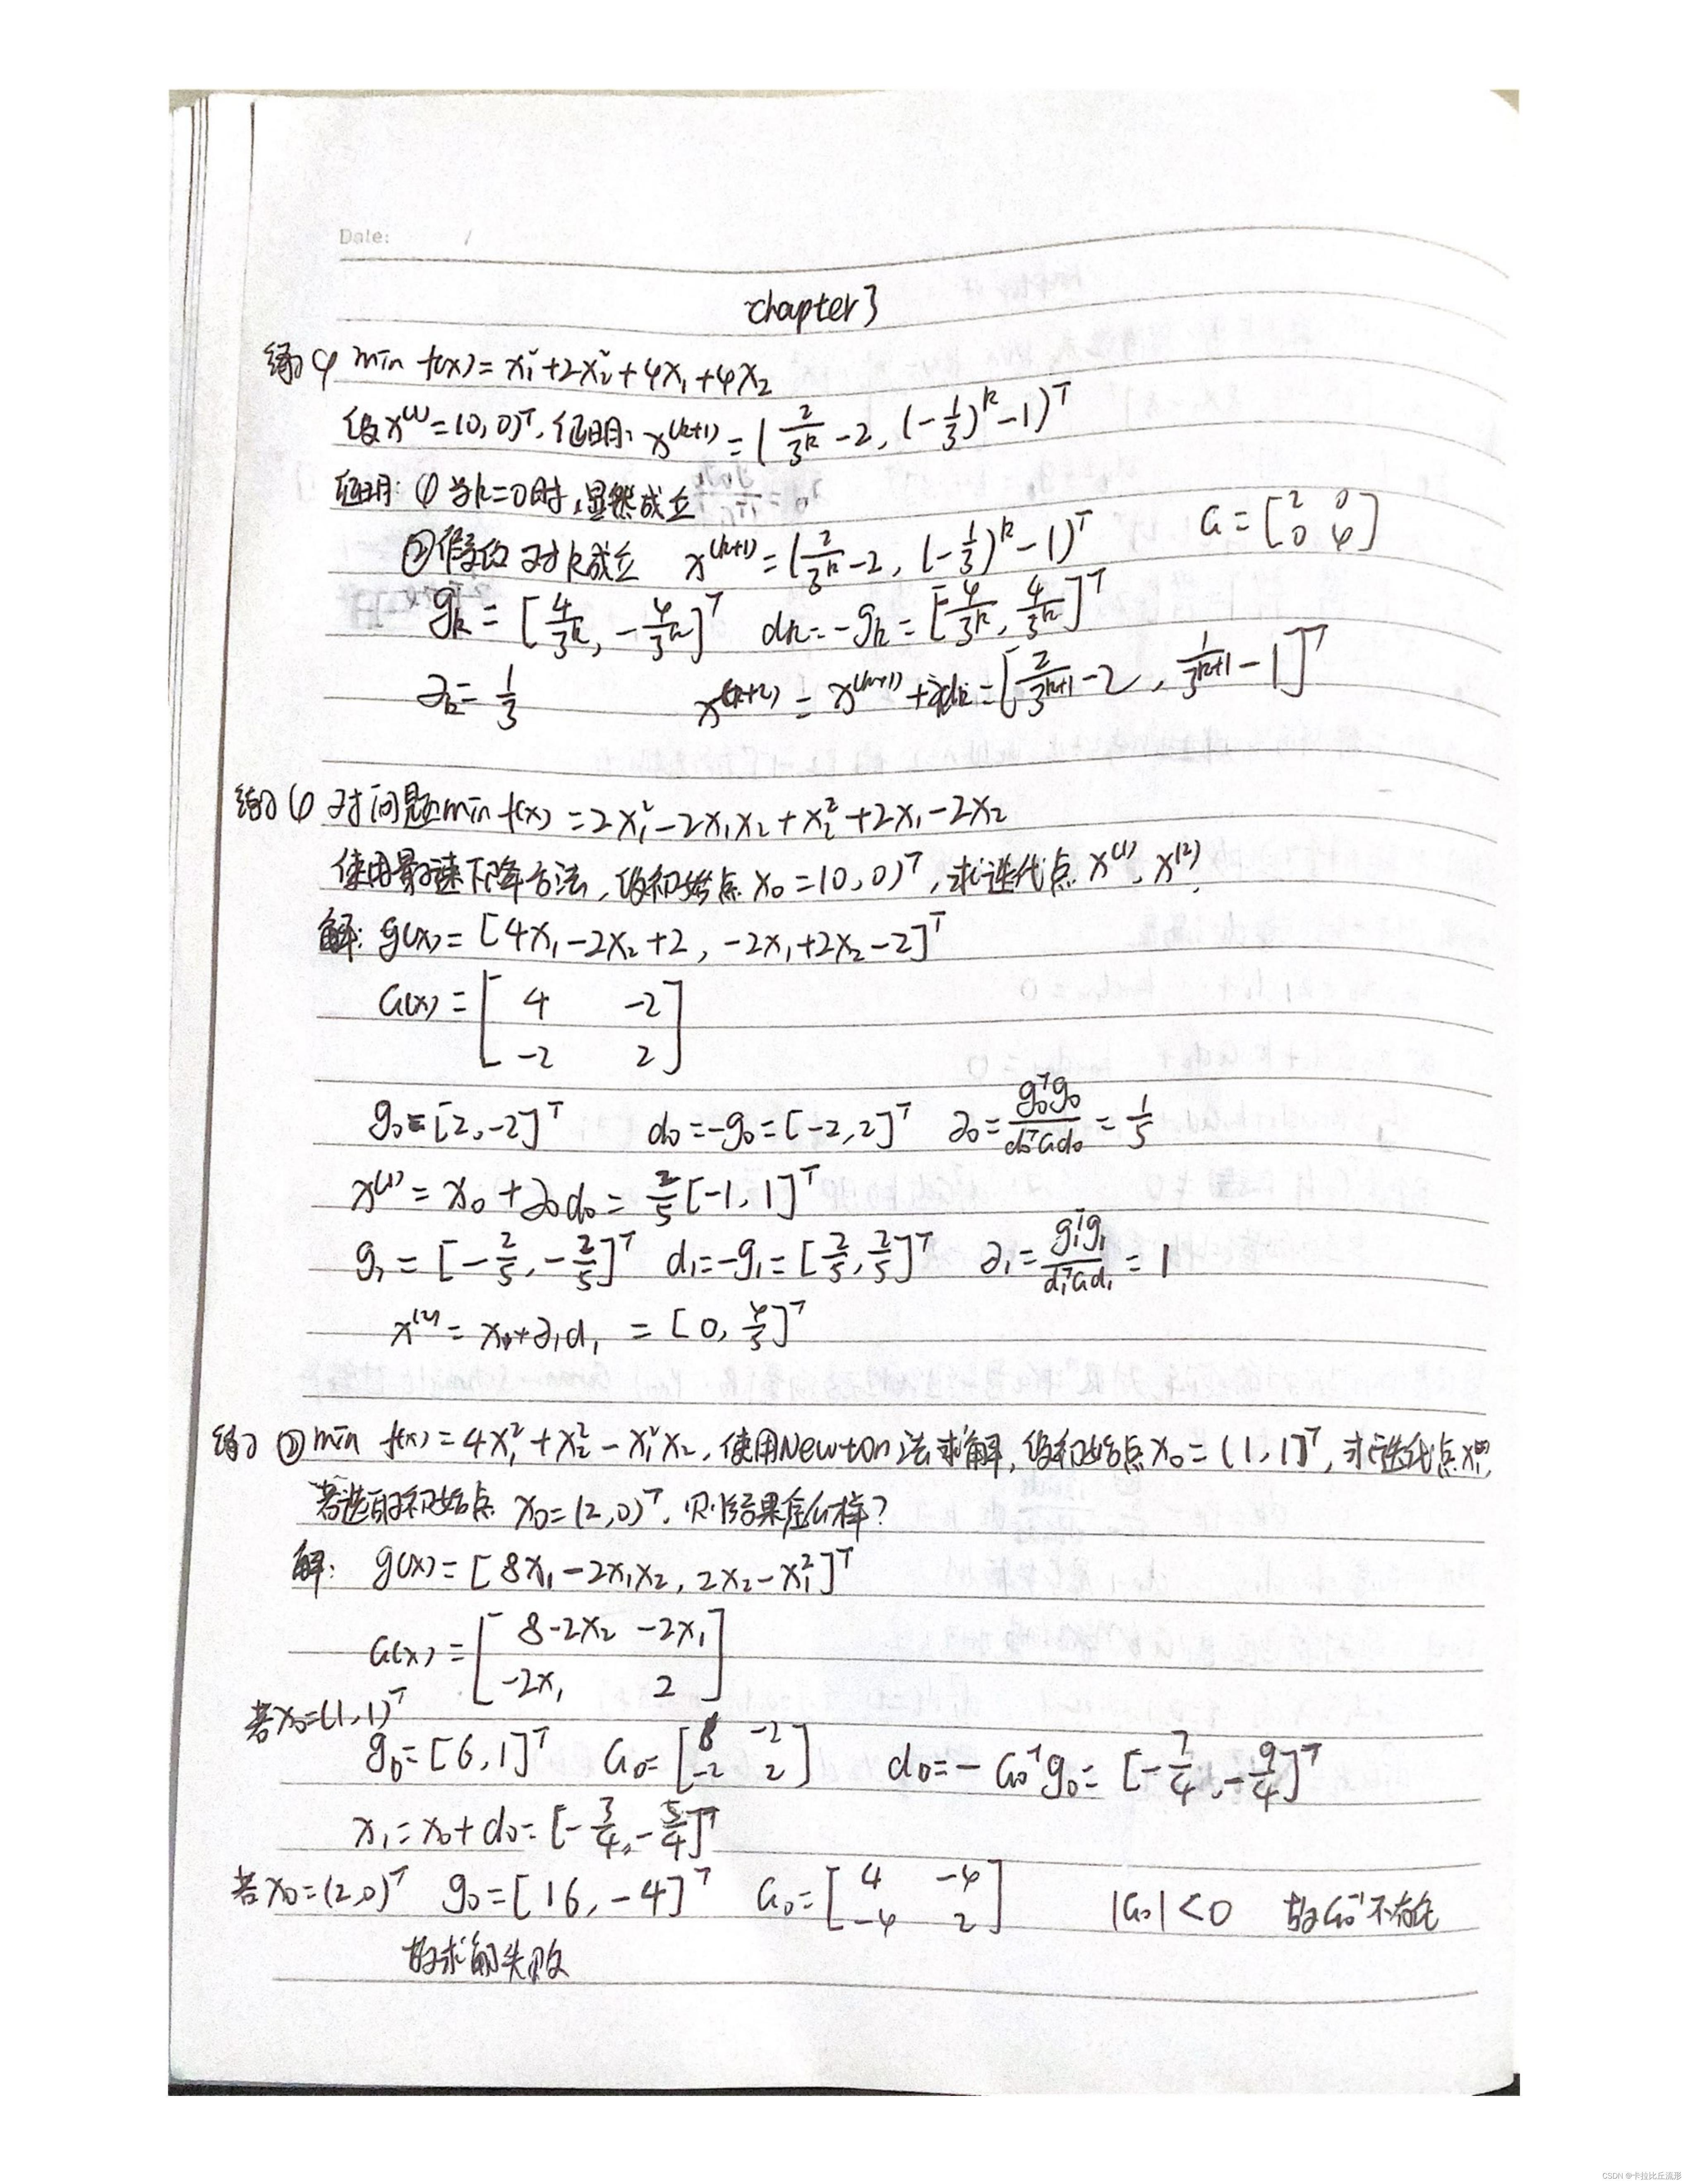 Date: /
chapter3
练习 min f(x) = x₁² + 2x₂² + 4x₁ + 4x₂
设x⁽¹⁾ = (0,0)ᵀ, 证明: x⁽ᵏ⁺¹⁾ = (2/3ᵏ - 2, (-1/3)ᵏ - 1)ᵀ
证明: ① 当k=0时, 显然成立
②假设对k成立 x⁽ᵏ⁺¹⁾ = (2/3ᵏ - 2, (-1/3)ᵏ - 1)ᵀ G = [2 0; 0 4]
gₖ = [4/3ᵏ, -4/3ᵏ]ᵀ dₖ = -gₖ = [-4/3ᵏ, 4/3ᵏ]ᵀ
∂ₖ = 1/3 x⁽ᵏ⁺²⁾ = x⁽ᵏ⁺¹⁾ + ∂dₖ = [2/3ᵏ⁺¹ - 2, 1/3ᵏ⁺¹ - 1]ᵀ
练习 对问题min f(x) = 2x₁² - 2x₁x₂ + x₂² + 2x₁ - 2x₂
使用最速下降方法, 设初始点 x₀ = (0,0)ᵀ, 求迭代点 x⁽¹⁾, x⁽²⁾.
解: g(x) = [4x₁ - 2x₂ + 2, -2x₁ + 2x₂ - 2]ᵀ
G(x) = [4 -2; -2 2]
g₀ = [2, -2]ᵀ d₀ = -g₀ = [-2, 2]ᵀ ∂₀ = g₀ᵀg₀/d₀ᵀGd₀ = 1/5
x⁽¹⁾ = x₀ + ∂₀d₀ = 2/5[-1, 1]ᵀ
g₁ = [-2/5, -2/5]ᵀ d₁ = -g₁ = [2/5, 2/5]ᵀ ∂₁ = g₁ᵀg₁/d₁ᵀGd₁ = 1
x⁽²⁾ = x₀ + ∂₁d₁ = [0, 4/5]ᵀ
练习 ② min f(x) = 4x₁² + x₂² - x₁²x₂, 使用Newton法求解, 设初始点 x₀ = (1,1)ᵀ, 求迭代点
若选的初始点 x₀ = (2,0)ᵀ, 则结果怎么样?
解: g(x) = [8x₁ - 2x₁x₂, 2x₂ - x₁²]ᵀ
G(x) = [8-2x₂ -2x₁; -2x₁ 2]
若x₀=(1,1)ᵀ
g₀ = [6, 1]ᵀ G₀ = [6 -2; -2 2] d₀ = -G₀⁻¹g₀ = [-7/4, -9/4]ᵀ
x₁ = x₀ + d₀ = [-3/4, -5/4]ᵀ
若x₀=(2,0)ᵀ g₀ = [16, -4]ᵀ G₀ = [4 -4; -4 2] |G₀| < 0 故G₀⁻¹不存在
故求解失败
CSDN @卡拉比丘流形